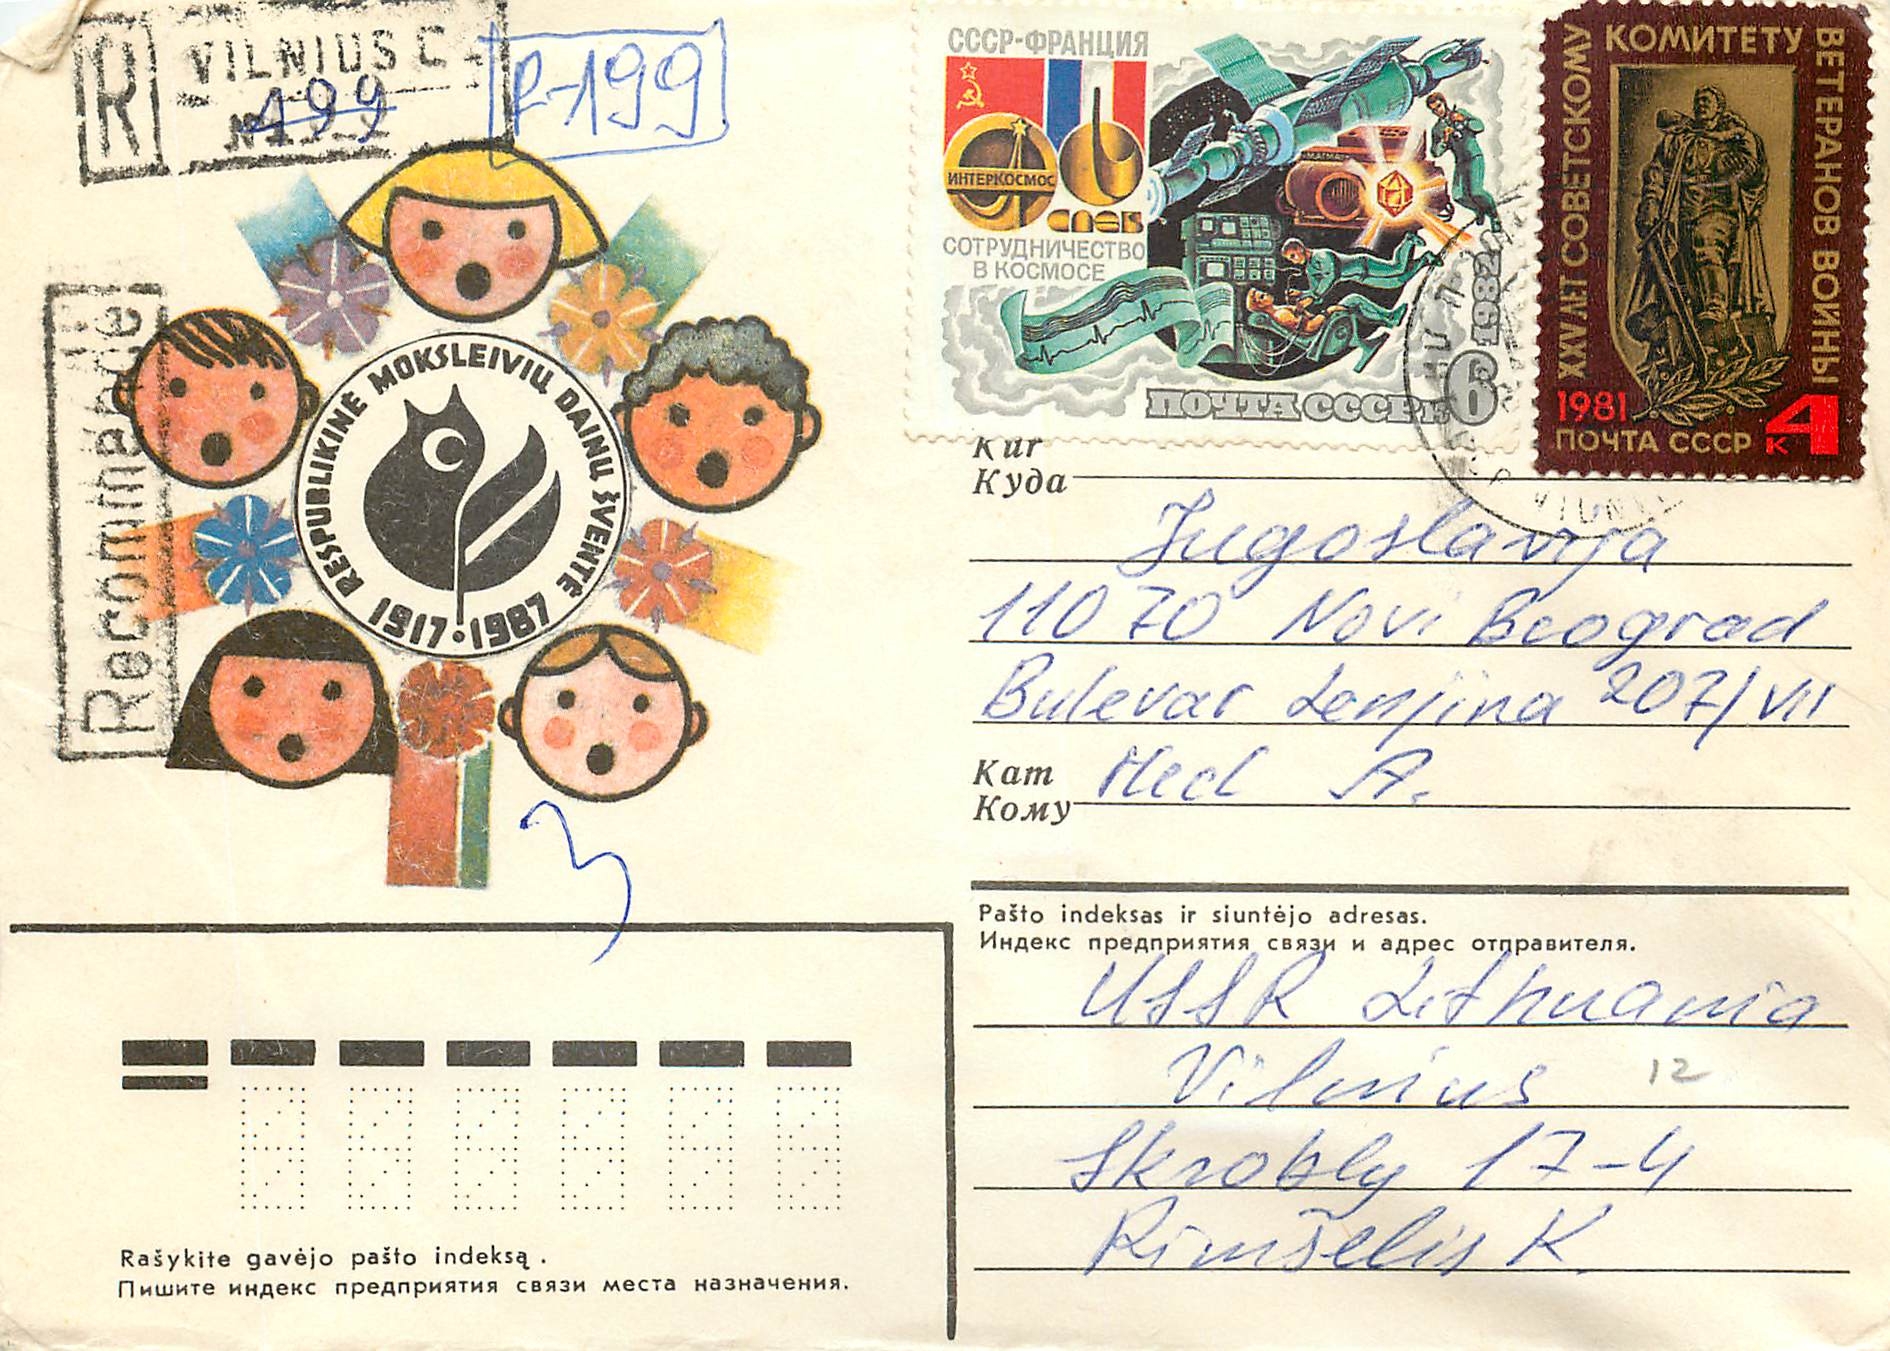 R
VILNIUS C
№ 199
R-199
Recommandé
RESPUBLIKINĖ MOKSLEIVIŲ DAINŲ ŠVENTĖ
1917·1987
СССР-ФРАНЦИЯ
ИНТЕРКОСМОС
СОТРУДНИЧЕСТВО
В КОСМОСЕ
1982
ПОЧТА СССР К 6
XXV ЛЕТ СОВЕТСКОМУ КОМИТЕТУ ВЕТЕРАНОВ ВОЙНЫ
1981
ПОЧТА СССР К 4
Kur
Куда
Jugoslavija
11070 Novi Beograd
Bulevar Lenjina 207/VII
Kam
Кому
Hecl A.
Pašto indeksas ir siuntėjo adresas.
Индекс предприятия связи и адрес отправителя.
USSR Lithuania
Vilnius 12
17-4
Rimšelis K.
3
Rašykite gavėjo pašto indeksą.
Пишите индекс предприятия связи места назначения.